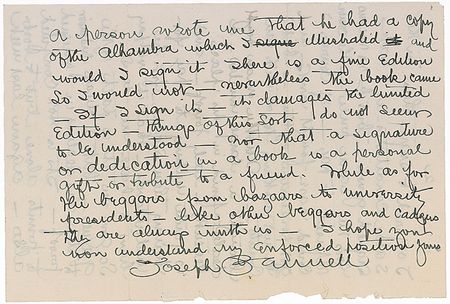 a person wrote me that he had a copy
of the Alhambra which I signe illustrated and
would I sign it — There is a fine Edition
So I would not — nevertheless the book came
— If I sign it — it damages the limited
Edition — things of this sort do not seem
to be understood — nor that a signature
or dedication in a book is a personal
gift or tribute to a friend. While as for
the beggars from bazaars to university
presidents — like other beggars and Cadgers
— the are always with us — I hope you
will understand my enforced position yours
Joseph Pennell